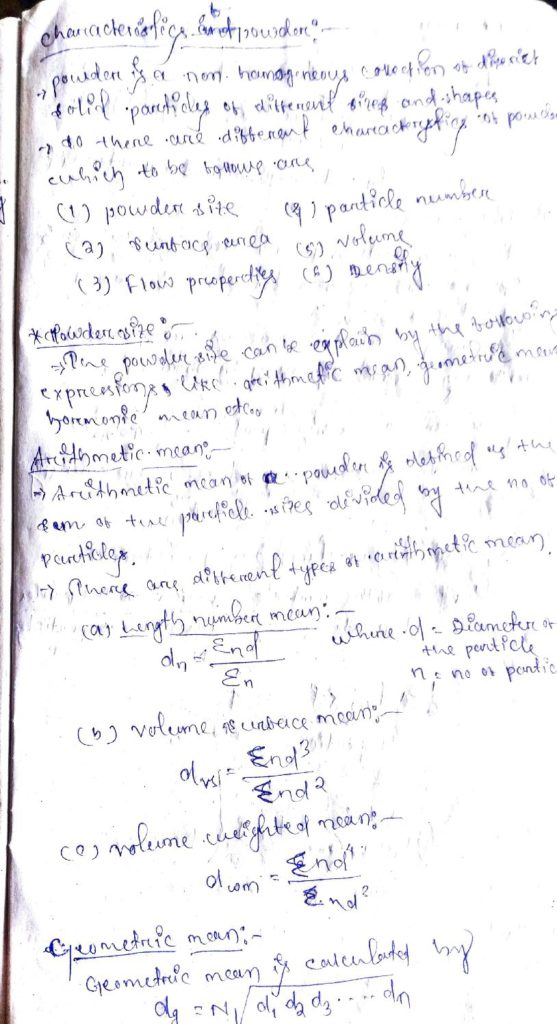 characteristics of powder:-
→ powder is a non. homogneous collection of discrict
solid particles of different sizes and shapes
→ so there are different characterystics of powder
which to be follows are
(1) powder size (4) particle number
(2) surface area (5) volume
(3) Flow properties (6) Density
* Powder size :-
⇒ The powder size can be explain by the following
expressions, like arithmetic mean, geometric mean
hormonic mean etc..
Arithmetic mean:-
→ Arithmetic mean of a powder is defined as the
sum of the particle sizes devided by the no of
particles.
→ There are different types of arithmetic mean.
(a) Length number mean:-
dn = Σnd / Σn where d = Diameter of
the particle
n = no of partic
(b) volume surface mean:-
dvs = Σnd3 / Σnd2
(c) volume weighted mean:-
dwm = Σnd4 / Σnd3
Geometric mean:-
Geometric mean is calculated by
dg = N√d1 d2 d3 .... dn